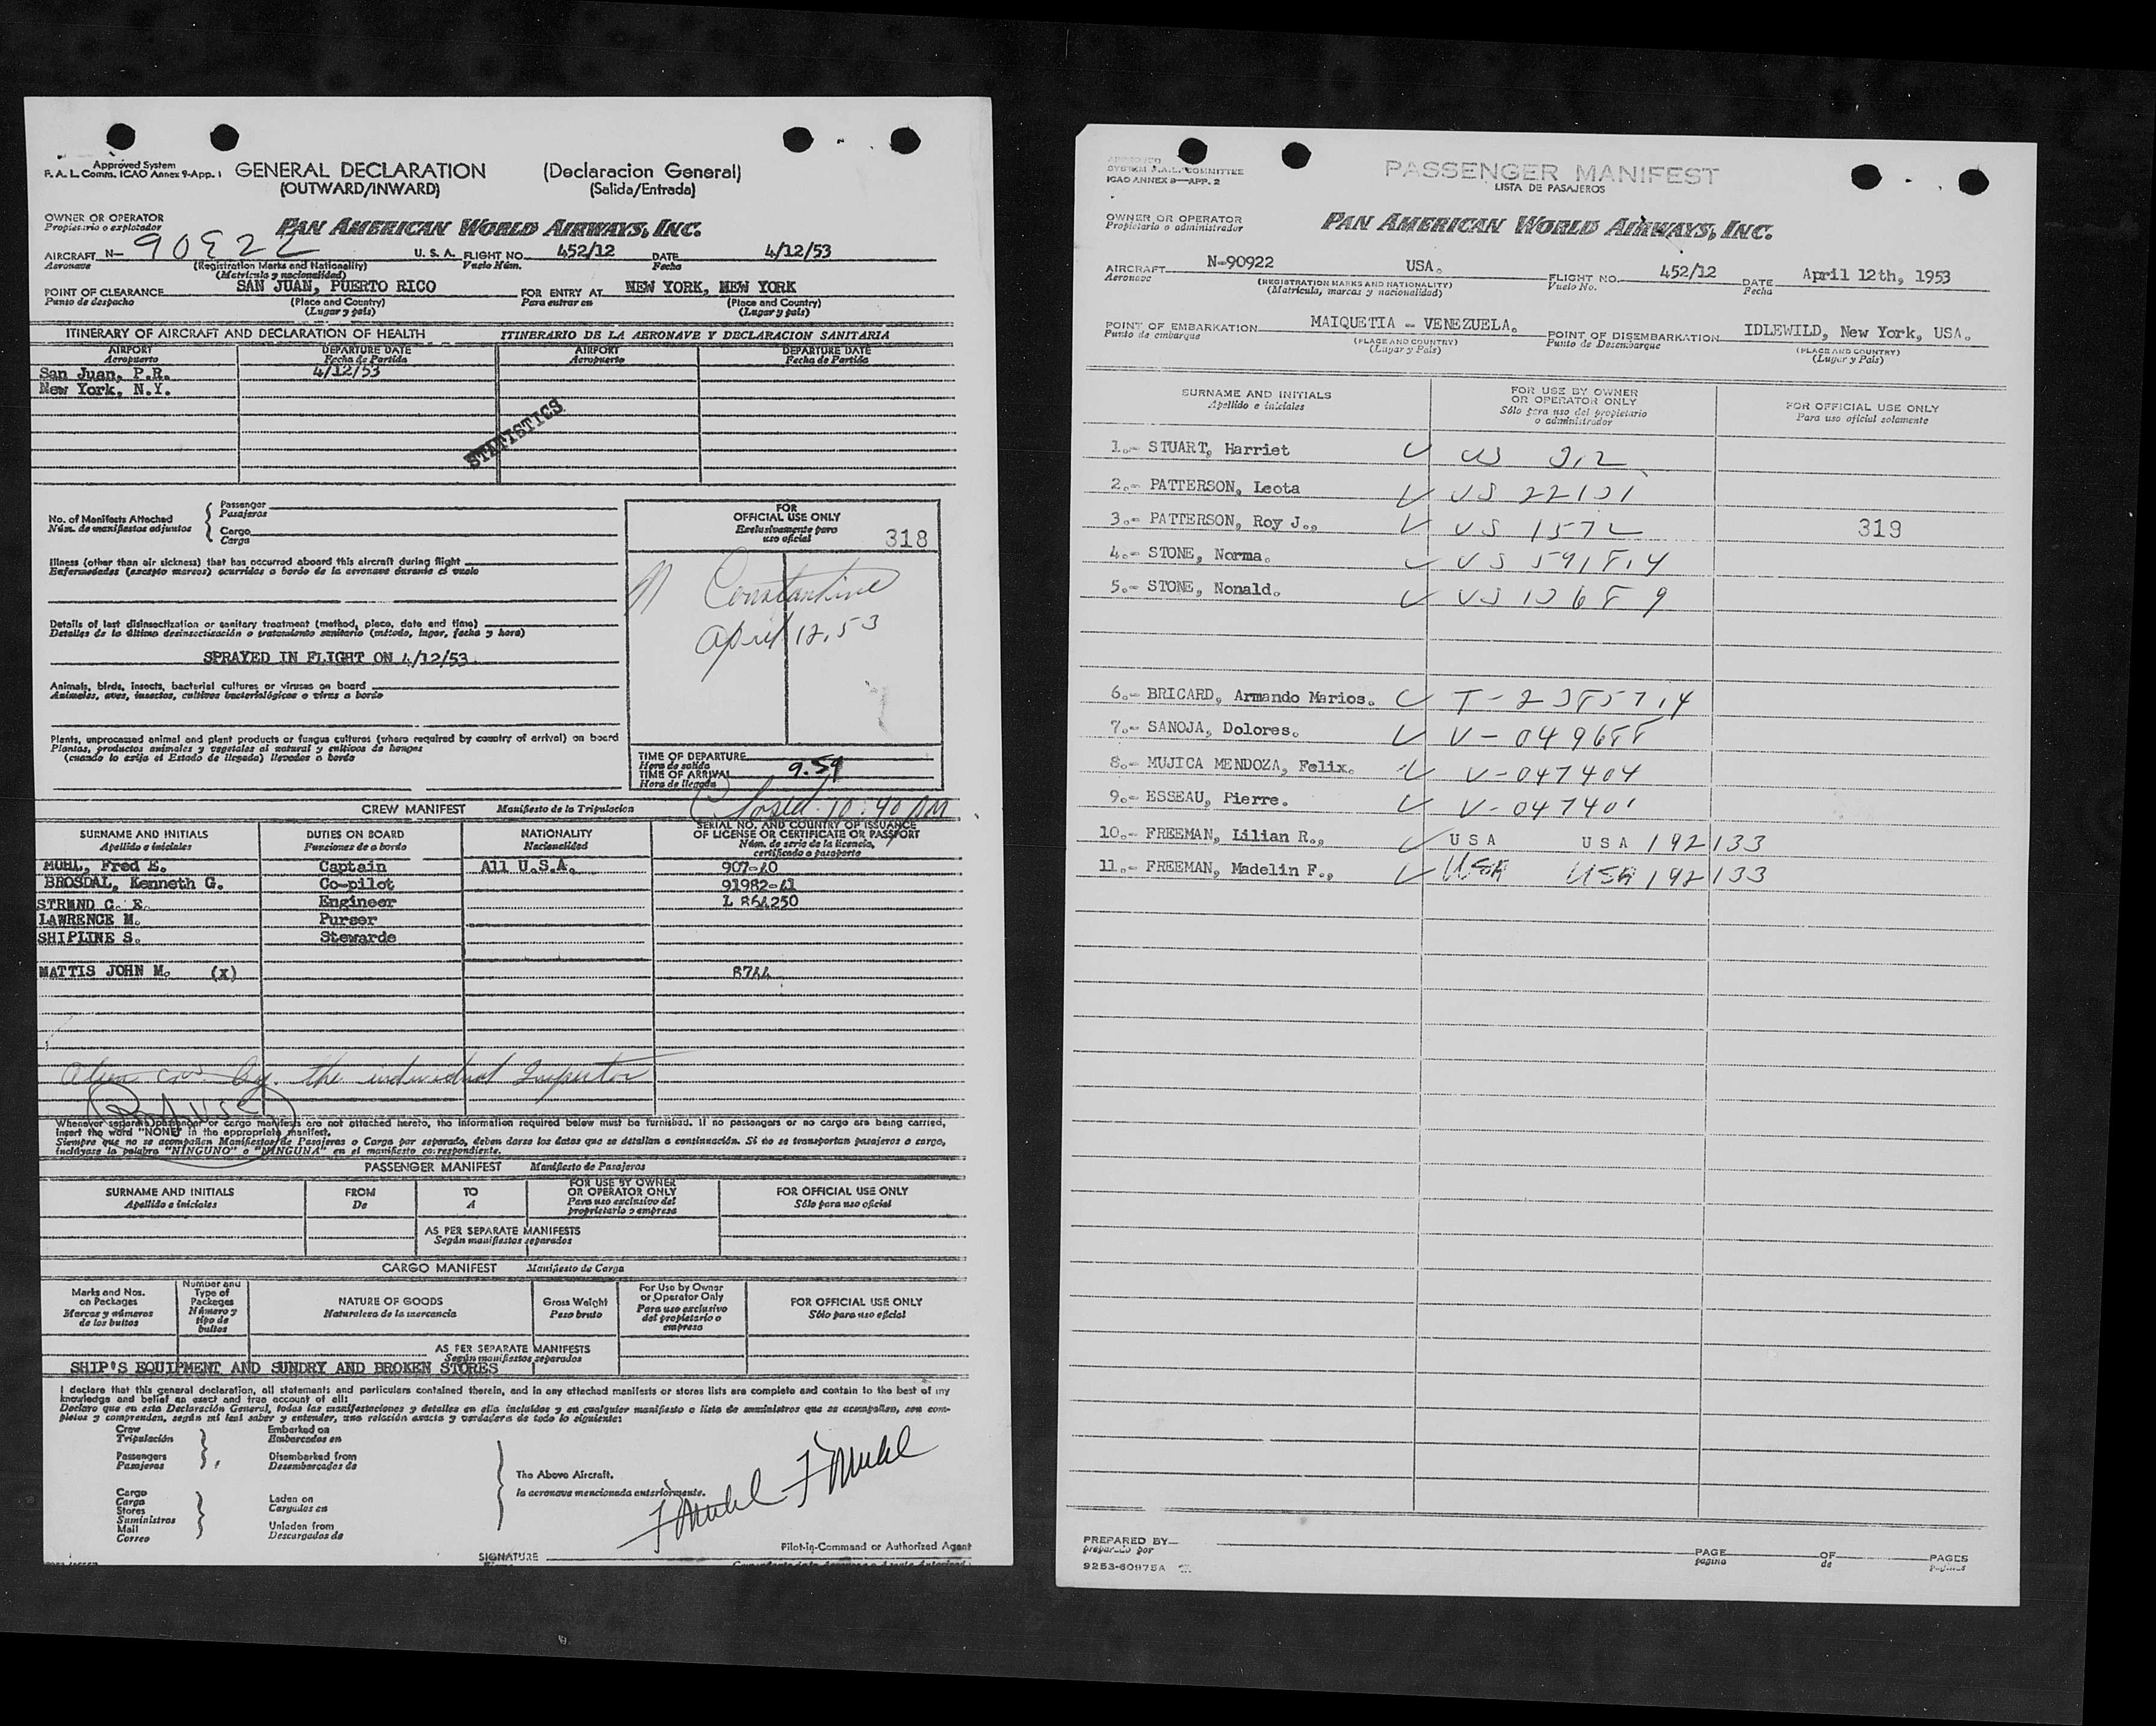 Approved System
F. A. L. Comm. ICAO Annex 9-App. 1
GENERAL DECLARATION (Declaracion General)
(OUTWARD/INWARD) (Salida/Entrada)
OWNER OR OPERATOR
Propietario o explotador
PAN AMERICAN WORLD AIRWAYS, INC.
AIRCRAFT N- 90922 U. S. A. FLIGHT NO. 452/12 DATE 4/12/53
Aeronave (Registration Marks and Nationality) Vuelo Núm. Fecha
(Matrícula y nacionalidad)
POINT OF CLEARANCE SAN JUAN, PUERTO RICO FOR ENTRY AT NEW YORK, NEW YORK
Punto de despacho (Place and Country) Para entrar en (Place and Country)
(Lugar y país) (Lugar y país)
ITINERARY OF AIRCRAFT AND DECLARATION OF HEALTH ITINERARIO DE LA AERONAVE Y DECLARACION SANITARIA
AIRPORT DEPARTURE DATE AIRPORT DEPARTURE DATE
Aeropuerto Fecha de Partida Aeropuerto Fecha de Partida
San Juan, P.R. 4/12/53
New York, N.Y.
STATISTICS
No. of Manifests Attached
Núm. de manifiestos adjuntos
Passenger
Pasajeros
Cargo
Carga
FOR
OFFICIAL USE ONLY
Exclusivamente para
uso oficial
318
Constantine
April 12, 53
Illness (other than air sickness) that has occurred aboard this aircraft during flight
Enfermedades (excepto mareos) ocurridas a bordo de la aeronave durante el vuelo
Details of last disinsectization or sanitary treatment (method, place, date and time)
Detalles de la última desinsectización o tratamiento sanitario (método, lugar, fecha y hora)
SPRAYED IN FLIGHT ON 4/12/53
Animals, birds, insects, bacterial cultures or viruses on board
Animales, aves, insectos, cultivos bacteriológicos o virus a bordo
Plants, unprocessed animal and plant products or fungus cultures (where required by country of arrival) on board
Plantas, productos animales y vegetales al natural y cultivos de hongos
(cuando lo exija el Estado de llegada) llevados a bordo
TIME OF DEPARTURE
Hora de salida
TIME OF ARRIVAL 9.59
Hora de llegada
10:40 AM
CREW MANIFEST Manifiesto de la Tripulacion
SURNAME AND INITIALS DUTIES ON BOARD NATIONALITY SERIAL NO. AND COUNTRY OF ISSUANCE OF LICENSE OR CERTIFICATE OR PASSPORT
Apellido e iniciales Funciones de a bordo Nacionalidad Núm. de serie de la licencia, certificado o pasaporte
MUHL, Fred E. Captain All U.S.A. 907-40
BROSDAL, Kenneth G. Co-pilot 91982-41
STRMND C. E. Engineer L 864250
LAWRENCE M. Purser
SHIPLINE S. Stewarde
MATTIS JOHN M. (x) 8744
by the individual Inspector
Whenever separate passenger or cargo manifests are not attached hereto, the information required below must be furnished. If no passengers or no cargo are being carried,
insert the word "NONE" in the appropriate manifest.
Siempre que no se acompañen Manifiestos de Pasajeros o Carga por separado, deben darse los datos que se detallan a continuación. Si no se transportan pasajeros o carga,
inclúyase la palabra "NINGUNO" o "NINGUNA" en el manifiesto correspondiente.
PASSENGER MANIFEST Manifiesto de Pasajeros
SURNAME AND INITIALS FROM TO FOR USE BY OWNER OR OPERATOR ONLY FOR OFFICIAL USE ONLY
Apellido e iniciales De A Para uso exclusivo del propietario o empresa Sólo para uso oficial
AS PER SEPARATE MANIFESTS
Según manifiestos separados
CARGO MANIFEST Manifiesto de Carga
Marks and Nos. on Packages Number and Type of Packages NATURE OF GOODS Gross Weight For Use by Owner or Operator Only FOR OFFICIAL USE ONLY
Marcas y números de los bultos Número y tipo de bultos Naturaleza de la mercancía Peso bruto Para uso exclusivo del propietario o empresa Sólo para uso oficial
AS PER SEPARATE MANIFESTS
Según manifiestos separados
SHIP'S EQUIPMENT AND SUNDRY AND BROKEN STORES
I declare that this general declaration, all statements and particulars contained therein, and in any attached manifests or stores lists are complete and contain to the best of my
knowledge and belief an exact and true account of all:
Declaro que en esta Declaración General, todas las manifestaciones y detalles en ella incluídos y en cualquier manifiesto o lista de suministros que se acompañen, son com-
pletos y comprenden, según mi leal saber y entender, una relación exacta y verdadera de todo lo siguiente:
Crew Embarked on
Tripulación Embarcados en
Passengers Disembarked from
Pasajeros Desembarcados de
The Above Aircraft.
la aeronave mencionada anteriormente.
Cargo Laden on
Carga Cargados en
Stores
Suministros
Mail Unladen from
Correo Descargados de
F Muhl F Muhl
Pilot-in-Command or Authorized Agent
SIGNATURE
APPROVED
SYSTEM F.A.L. COMMITTEE
ICAO ANNEX 9—APP. 2
PASSENGER MANIFEST
LISTA DE PASAJEROS
OWNER OR OPERATOR
Propietario o administrador
PAN AMERICAN WORLD AIRWAYS, INC.
AIRCRAFT N-90922 USA. FLIGHT NO. 452/12 DATE April 12th, 1953
Aeronave (REGISTRATION MARKS AND NATIONALITY) Vuelo No. Fecha
(Matrícula, marcas y nacionalidad)
POINT OF EMBARKATION MAIQUETIA - VENEZUELA. POINT OF DISEMBARKATION IDLEWILD, New York, USA.
Punto de embarque (PLACE AND COUNTRY) Punto de Desembarque (PLACE AND COUNTRY)
(Lugar y País) (Lugar y País)
SURNAME AND INITIALS FOR USE BY OWNER OR OPERATOR ONLY FOR OFFICIAL USE ONLY
Apellido e iniciales Sólo para uso del propietario o administrador Para uso oficial solamente
1.- STUART, Harriet US
2.- PATTERSON, Leota US
3.- PATTERSON, Roy J., US 1572 319
4.- STONE, Norma. US
5.- STONE, Nonald. US
6.- BRICARD, Armando Marios.
7.- SANOJA, Dolores. V-049688
8.- MUJICA MENDOZA, Felix. V-047404
9.- ESSEAU, Pierre. V-047401
10.- FREEMAN, Lilian R., USA USA 192133
11.- FREEMAN, Madelin F., USA USA 192133
PREPARED BY
preparado por
PAGE OF PAGES
pagina de paginas
9253-60975A